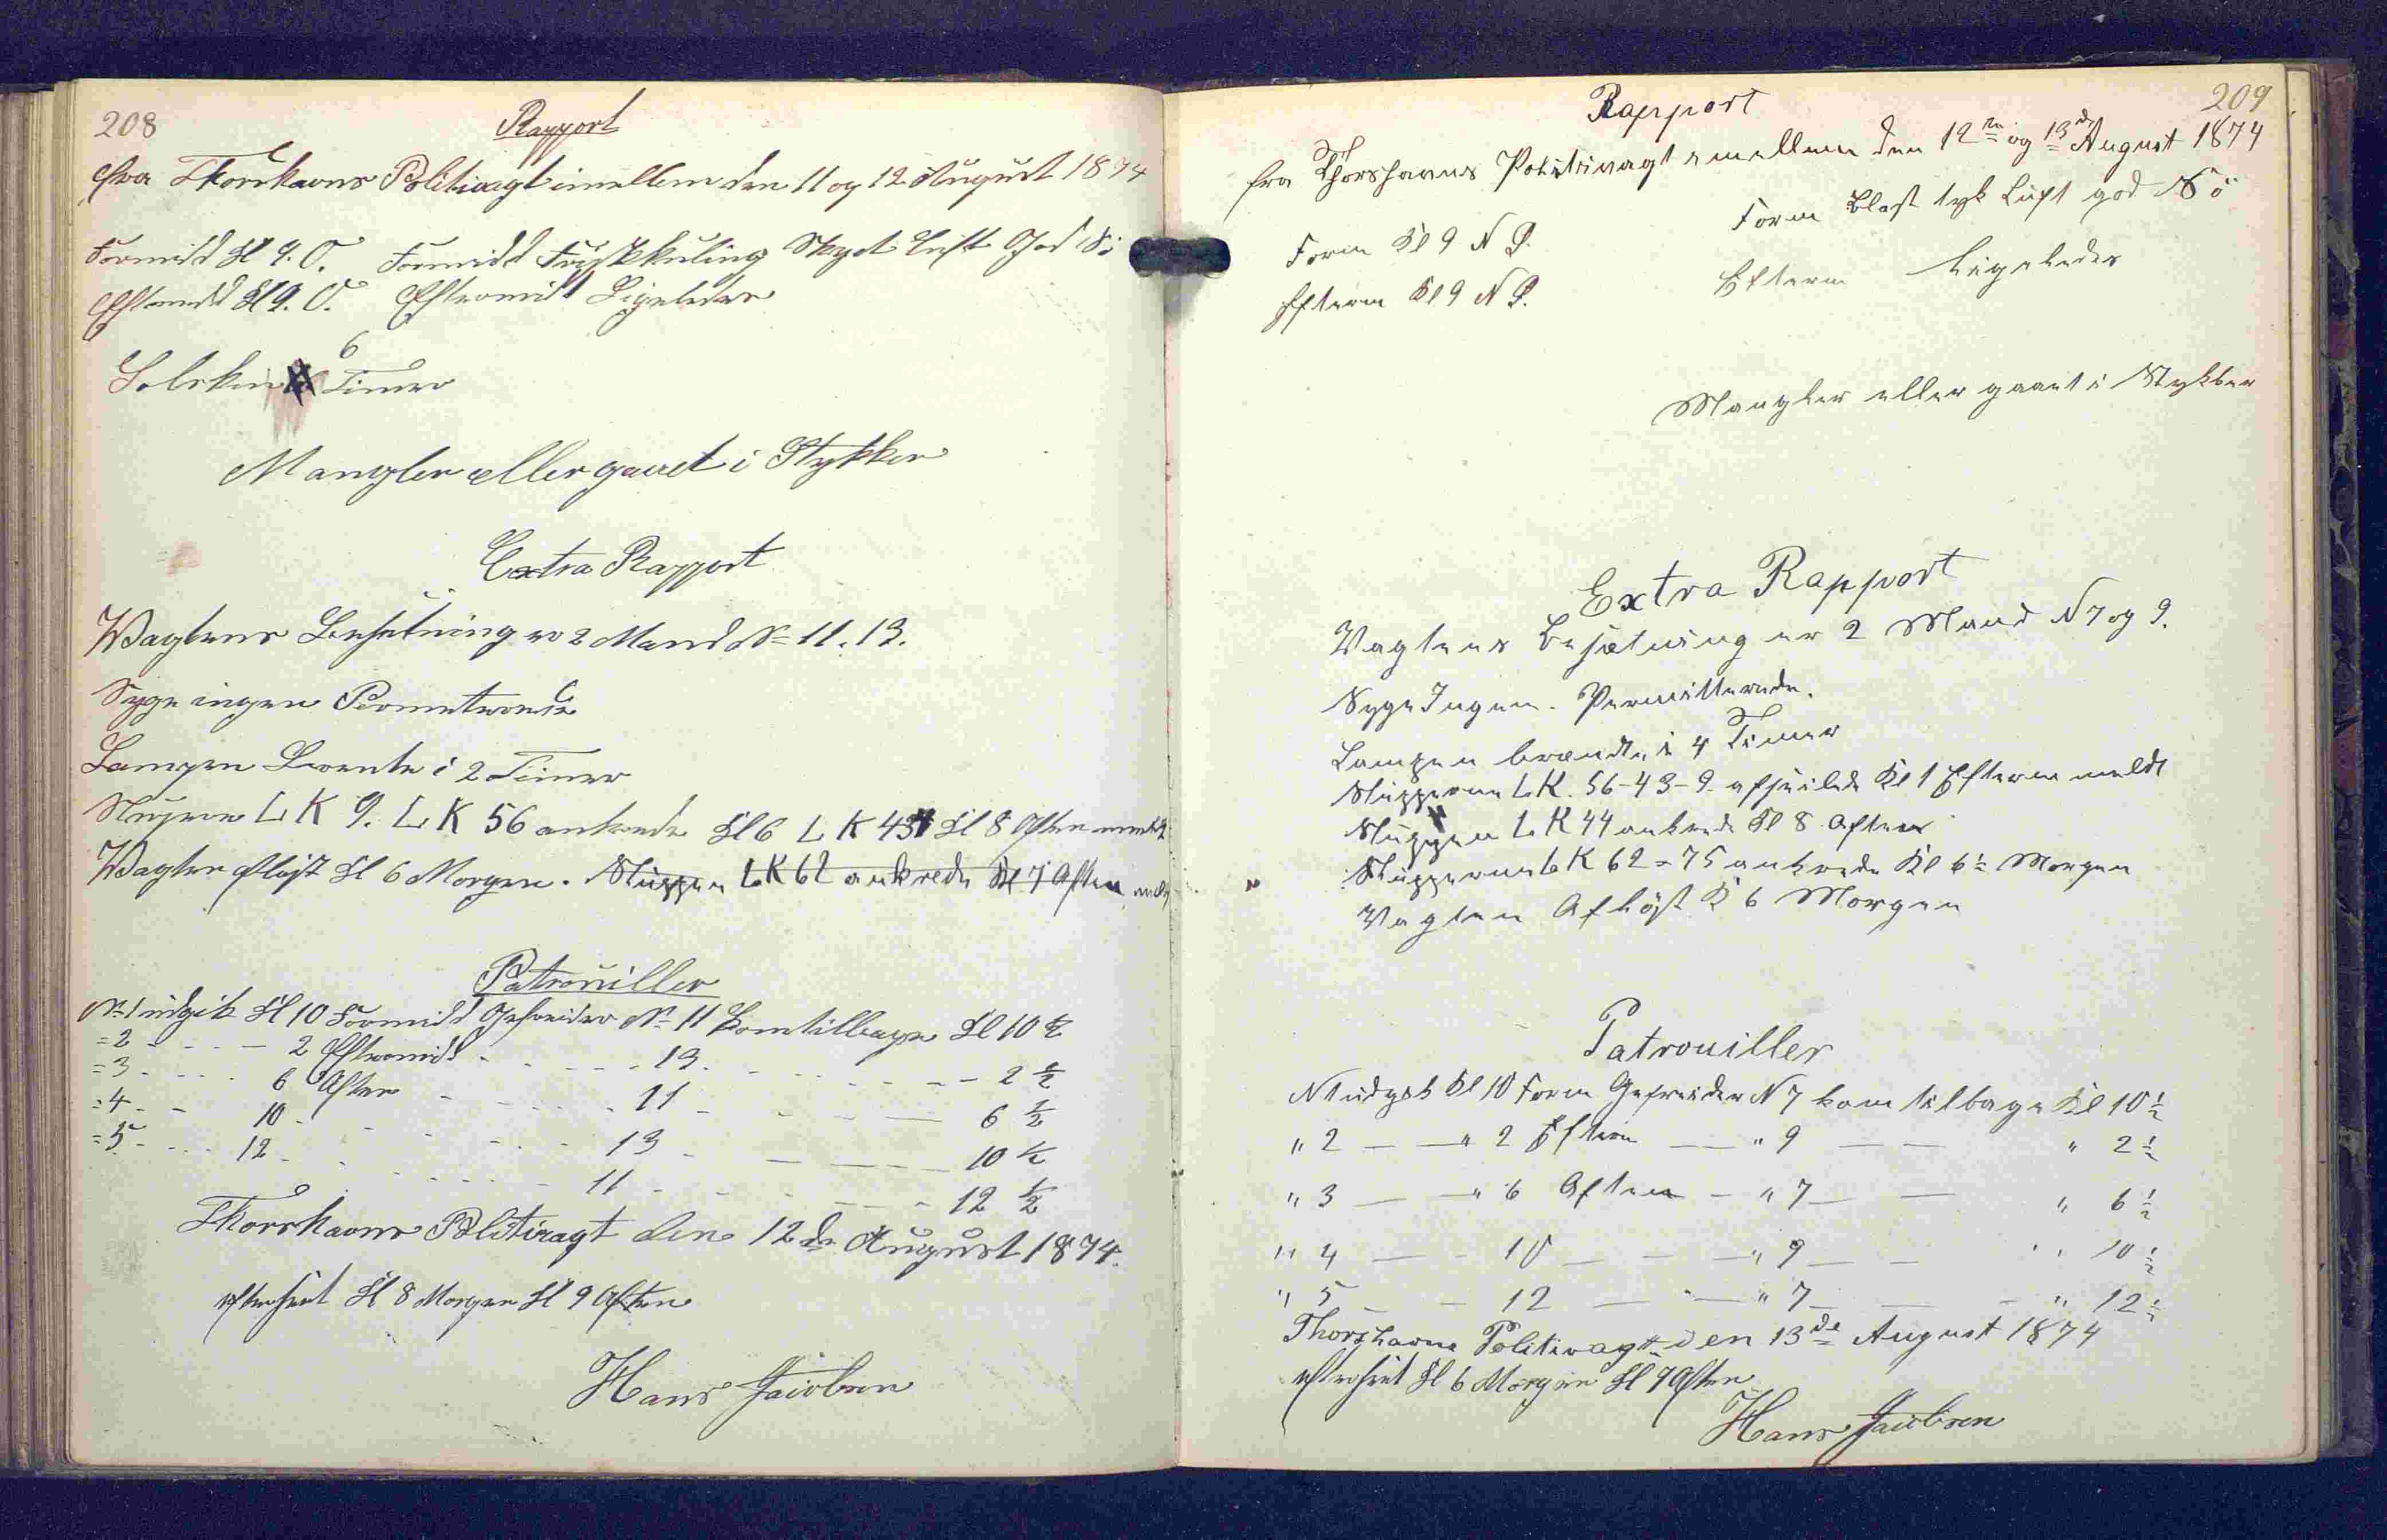 208
Rapport
fra Thorshavns Politivagt imellem den 11 og 12 August 1874
Formidd Kl 9. O. Formidd Friskkuling Skyet Luft God Sö
Eftermidd Kl 9. O. Eftermidd Ligeledes
6
Solskin Timer
Mangler eller gaaet i Stykker
Extra Rapport
Vagtens Besætning er 2 Mand No 11. 13.
Syge ingen Permeterede
Lampen Brente i 2 Timer
LK 9. LK 56 ankrede Kl 6 LK 43 Kl 8 Aften
Vagten afløst Kl 6 Morgen. Sluppen LK 62 ankrede Kl 7 Aften
Patrouiller
No 1 udgik Kl 10 Formidd Gefreider No 11 kom tilbage Kl 10 1/2
=2 - - - - 2 Eftermidd - - - - 13. - - - - 2 1/2
=3 - - - 6 Aften - - - - 11 - - - - 6 1/2
=4 - - 10 - - - - 13 - - - - 10 1/2
=5 - - - 12 - - - - 11 - - - - 12 1/2
Thorshavns Politivagt den 12de August 1874.
efterseet Kl 8 Morgen Kl 9 Aften
Hans Jacobsen
209
Rapport
fra Thorshavns Politivagt emellem den 12te og 13de August 1874
Form Kl 9 N O. Form Blæst tyk Luft god Sö
Efterm Kl 9 N O. Efterm Ligeledes
Mangler eller gaaet i Stykker
Extra Rapport
Vagtens Besætning er 2 Mand N 7 og 9.
Syge Ingen. Permitterede.
Lampen brændte i 4 Timer
Slupperne LK. 56-43-9. afseilede Kl 1 Efterm meldt
Sluppen LK 44 ankrede Kl 8 Aften
Slupperne LK 62 = 75 ankrede Kl 6 1/2 Morgen
Vagten Afløst K 6 Morgen
Patrouiller
N 1 udgik Kl 10 Form Gefreider N 7 kom tilbage Kl 10 1/2
" 2 — " 2 Efterm — " 9 — — " 2 1/2
" 3 — " 6 Aften — " 7 — — " 6 1/2
" 4 — - 10 — — " 9 — — " 10 1/2
" 5 — - 12 — — " 7 — — " 12 1/2
Thorshavns Politivagt den 13de August 1874
efterseet Kl 6 Morgen Kl 9 Aften
Hans Jacobsen